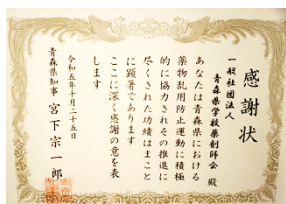 感謝状
一般社団法人
青森県学校薬剤師会 殿
あなたは青森県における
薬物乱用防止運動に積極
的に協力されその推進に
尽くされた功績はまこと
に顕著であります
ここに深く感謝の意を表
します
令和五年十月二十五日
青森県知事 宮下宗一郎